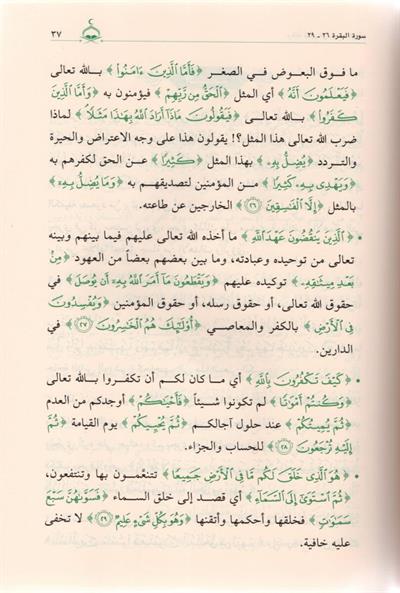 سورة البقرة ٢٦ - ٢٩
٣٧
ما فوق البعوض في الصغر ﴿ فَأَمَّا الَّذِينَ ءَامَنُوا ﴾ بـالله تعالى
﴿ فَيَعْلَمُونَ أَنَّهُ ﴾ أي المثل ﴿ الْحَقُّ مِن رَّبِّهِمْ ﴾ فيؤمنون به ﴿ وَأَمَّا الَّذِينَ
كَفَرُوا ﴾ بـالله تعالـى ﴿ فَيَقُولُونَ مَاذَا أَرَادَ اللَّهُ بِهَٰذَا مَثَلًا ﴾ لماذا
ضرب الله تعالى هذا المثل؟! يقولون هذا على وجه الاعتراض والحيرة
والتردد ﴿ يُضِلُّ بِهِ ﴾ بهذا المثل ﴿ كَثِيرًا ﴾ عن الحق لكفرهم به
﴿ وَيَهْدِي بِهِ كَثِيرًا ﴾ مـن المؤمنين لتصديقهم به ﴿ وَمَا يُضِلُّ بِهِ ﴾
بالمثل ﴿ إِلَّا الْفَاسِقِينَ ٢٦ ﴾ الخارجين عن طاعته.
• ﴿ الَّذِينَ يَنقُضُونَ عَهْدَ اللَّهِ ﴾ ما أخذه الله تعالى عليهم فيما بينهم وبينه
تعالى من توحيده وعبادته، وما بين بعضهم بعضاً من العهود ﴿ مِن
بَعْدِ مِيثَاقِهِ ﴾ توكيده عليهم ﴿ وَيَقْطَعُونَ مَا أَمَرَ اللَّهُ بِهِ أَن يُوصَلَ ﴾ في
حقوق الله تعالى، أو حقوق رسله، أو حقوق المؤمنين ﴿ وَيُفْسِدُونَ
فِي الْأَرْضِ ﴾ بالكفر والمعاصـي ﴿ أُولَٰئِكَ هُمُ الْخَاسِرُونَ ٢٧ ﴾ في
الدارين.
• ﴿ كَيْفَ تَكْفُرُونَ بِاللَّهِ ﴾ أي مـا كان لكـم أن تكفـروا بـالله تعالى
﴿ وَكُنتُمْ أَمْوَاتًا ﴾ لم تكونوا شـيئاً ﴿ فَأَحْيَاكُمْ ﴾ أوجدكم من العدم
﴿ ثُمَّ يُمِيتُكُمْ ﴾ عند حلول آجالكـم ﴿ ثُمَّ يُحْيِيكُمْ ﴾ يوم القيامة ﴿ ثُمَّ
إِلَيْهِ تُرْجَعُونَ ٢٨ ﴾ للحساب والجزاء.
• ﴿ هُوَ الَّذِي خَلَقَ لَكُم مَّا فِي الْأَرْضِ جَمِيعًا ﴾ تتنعَّمون بها وتنتفعون،
﴿ ثُمَّ اسْتَوَىٰ إِلَى السَّمَاءِ ﴾ أي قصد إلى خلق السماء ﴿ فَسَوَّاهُنَّ سَبْعَ
سَمَاوَاتٍ ﴾ فخلقها وأحكمها وأتقنها ﴿ وَهُوَ بِكُلِّ شَيْءٍ عَلِيمٌ ٢٩ ﴾ لا تخفى
عليه خافية.